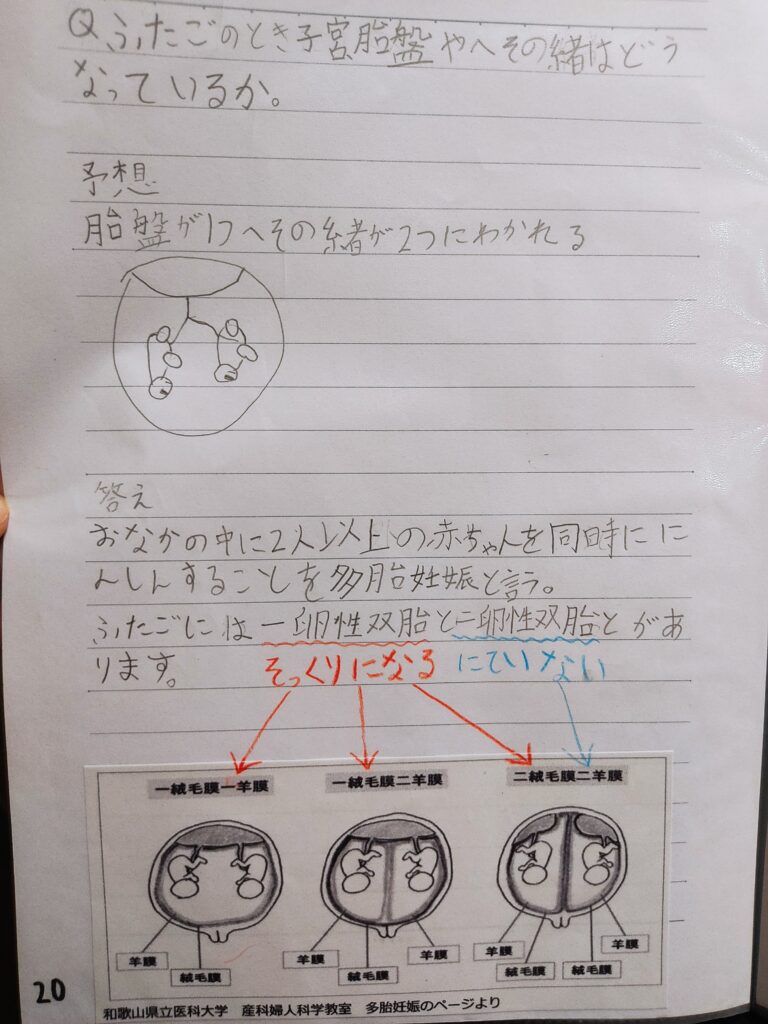 Q ふたごのとき子宮、胎盤やへその緒はどう
なっているか。
予想
胎盤が1つへその緒が2つにわかれる
答え
おなかの中に2人以上の赤ちゃんを同時にに
んしんすることを多胎妊娠と言う。
ふたごには一卵性双胎と二卵性双胎とがあ
ります。
そっくりになる にていない
一絨毛膜一羊膜 一絨毛膜二羊膜 二絨毛膜二羊膜
羊膜 絨毛膜 羊膜 絨毛膜 羊膜 羊膜 絨毛膜 絨毛膜 羊膜
20
和歌山県立医科大学 産科婦人科学教室 多胎妊娠のページより